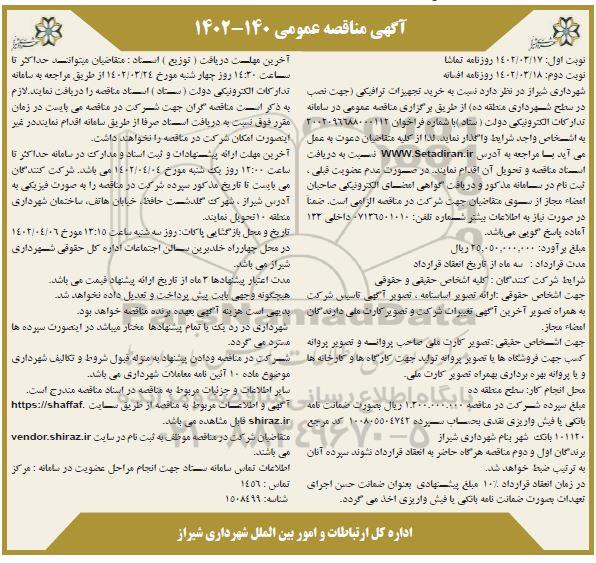 آگهی مناقصه عمومی ۱۴۰-۱۴۰۲
نوبت اول: ۱۴۰۲/۰۳/۱۷ روزنامه تماشا
نوبت دوم: ۱۴۰۲/۰۳/۱۸ روزنامه افسانه
شهرداری شیراز در نظر دارد نسبت به خرید تجهیزات ترافیکی (جهت نصب
در سطح شهرداری منطقه ده) از طریق برگزاری مناقصه عمومی در سامانه
تدارکات الکترونیکی دولت ( ستاد )با شماره فراخوان ۲۰۰۲۰۹۶۶۸۸۰۰۰۱۱۲
به اشخاص واجد شرایط واگذار نماید، لذا از کلیه متقاضیان دعوت به عمل
می آید با مراجعه به آدرس WWW.Setadiran.ir نسبت به دریافت
اسناد مناقصه و تحویل آن اقدام نمایند. در صورت عدم عضویت قبلی ،
ثبت نام در سامانه مذکور و دریافت گواهی امضای الکترونیکی صاحبان
امضاء مجاز از سوی متقاضیان جهت شرکت در مناقصه الزامی است. ضمناً
در صورت نیاز به اطلاعات بیشتر شماره تلفن: ۰۷۱۳۶۵۰۱۰۱۰ داخلی ۱۳۳
آماده پاسخ گویی می‌باشد.
مبلغ برآورد: ۲۵,۰۵۰,۰۰۰,۰۰۰ ریال
مدت قرارداد : سه ماه از تاریخ انعقاد قرارداد
شرایط شرکت کنندگان : کلیه اشخاص حقیقی و حقوقی
جهت اشخاص حقوقی :ارائه تصویر اساسنامه ، تصویر آگهی تاسیس شرکت
به همراه تصویر آخرین آگهی تغییرات شرکت و تصویر کارت ملی دارندگان
امضاء مجاز.
جهت اشخاص حقیقی :تصویر کارت ملی صاحب پروانه و تصویر پروانه
کسب جهت فروشگاه ها یا تصویر پروانه تولید جهت کارگاه ها و کارخانه ها
و یا پروانه بهره برداری بهمراه تصویر کارت ملی.
محل انجام کار: سطح منطقه ده
مبلغ سپرده شرکت در مناقصه ۱,۳۰۰,۰۰۰,۰۰۰ ریال بصورت ضمانت نامه
بانکی یا فیش واریزی نقدی بحساب سپرده ۱۰۰۸۰۵۵۰۴۷۴۲ کد مرجع
۱۰۱۱۲۰ بانک شهر بنام شهرداری شیراز
برندگان اول و دوم مناقصه هرگاه حاضر به انعقاد قرارداد نشوند سپرده آنان
به ترتیب ضبط خواهد شد.
در زمان انعقاد قرارداد ۱۰٪ مبلغ پیشنهادی بعنوان ضمانت حسن اجرای
تعهدات بصورت ضمانت نامه بانکی یا فیش واریزی اخذ می گردد.
آخرین مهلت دریافت ( توزیع ) اسناد : متقاضیان میتوانند حداکثر تا
ساعت ۱۴:۳۰ روز چهار شنبه مورخ ۱۴۰۲/۰۳/۲۴ از طریق مراجعه به سامانه
تدارکات الکترونیکی دولت ( ستاد ) اسناد مناقصه را دریافت نمایند.لازم
به ذکر است مناقصه گران جهت شرکت در مناقصه می بایست در زمان
مقرر فوق نسبت به دریافت اسناد صرفا از طریق سامانه اقدام نمایند.در غیر
اینصورت امکان شرکت در مناقصه را نخواهند داشت.
آخرین مهلت ارائه پیشنهادات و ثبت اسناد و مدارک در سامانه حداکثر تا
ساعت ۱۲:۰۰ روز یک شنبه مورخ ۱۴۰۲/۰۴/۰۴ می باشد. شرکت کنندگان
می بایست تا تاریخ مذکور سپرده شرکت در مناقصه را به صورت فیزیکی به
آدرس شیراز ، شهرک گلدشت حافظ، خیابان هاتف، ساختمان شهرداری
منطقه ۱۰ تحویل نمایند.
تاریخ و محل بازگشایی پاکات: روز سه شنبه ساعت ۱۳:۱۵ مورخ ۱۴۰۲/۰۴/۰۶
در محل چهارراه خلدبرین سالن اجتماعات اداره کل حقوقی شهرداری
شیراز می باشد.
مدت اعتبار پیشنهادها ۳ ماه از تاریخ ارائه پیشنهاد قیمت می باشد.
هیچگونه وجهی بابت پیش پرداخت و تعدیل داده نخواهد شد.
بدیهی است هزینه آگهی بعهده برنده مناقصه خواهد بود.
شهرداری در رد یک یا تمام پیشنهادها مختار میباشد در اینصورت سپرده ها
مسترد می گردد.
شرکت در مناقصه ودادن پیشنهاد به منزله قبول شروط و تکالیف شهرداری
موضوع ماده ۱۰ آئین نامه معاملات شهرداری می باشد.
سایر اطلاعات و جزئیات مربوط به مناقصه در اسناد مناقصه مندرج است.
آگهی و اطلاعات مربوط به مناقصه از طریق سایت https://shaffaf.
shiraz.ir قابل مشاهده می باشد.
متقاضیان شرکت در مناقصه موظف به ثبت نام در سایت vendor.shiraz.ir
می باشند.
اطلاعات تماس سامانه ستاد جهت انجام مراحل عضویت در سامانه : مرکز
تماس : ۱۴۵۶
شناسه: ۱۵۰۸۴۹۹
اداره کل ارتباطات و امور بین الملل شهرداری شیراز